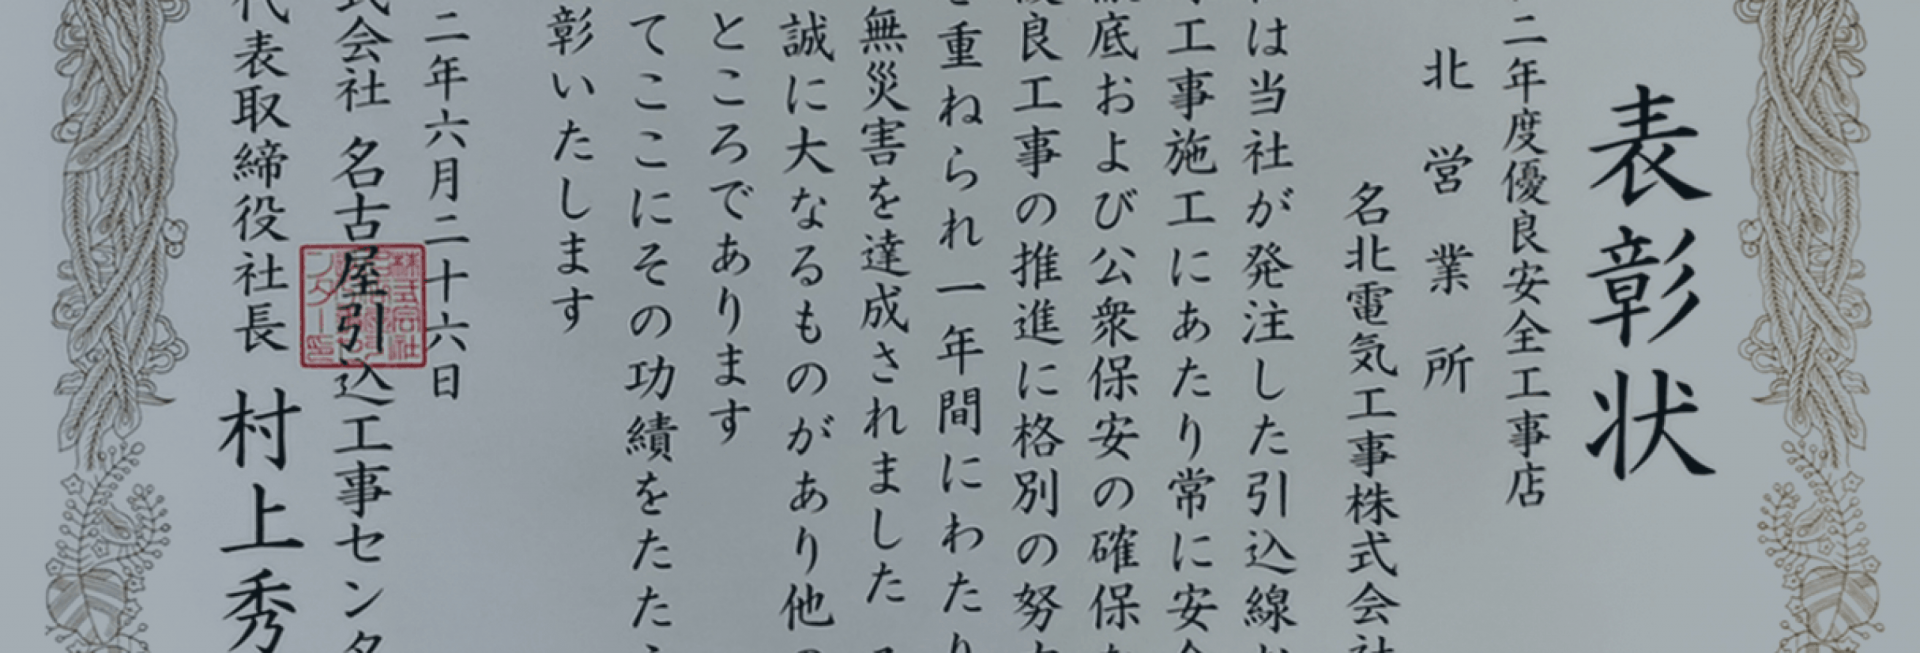 表彰状
二年度優良安全工事店
北営業所
名北電気工事株式会社
は当社が発注した引込線
工事施工にあたり常に安全
底および公衆保安の確保
良工事の推進に格別の努
重ねられ一年間にわたり
無災害を達成されました
誠に大なるものがあり他
ところであります
てここにその功績をたた
彰いたします
二年六月二十六日
式会社 名古屋引込工事センタ
代表取締役社長 村上秀